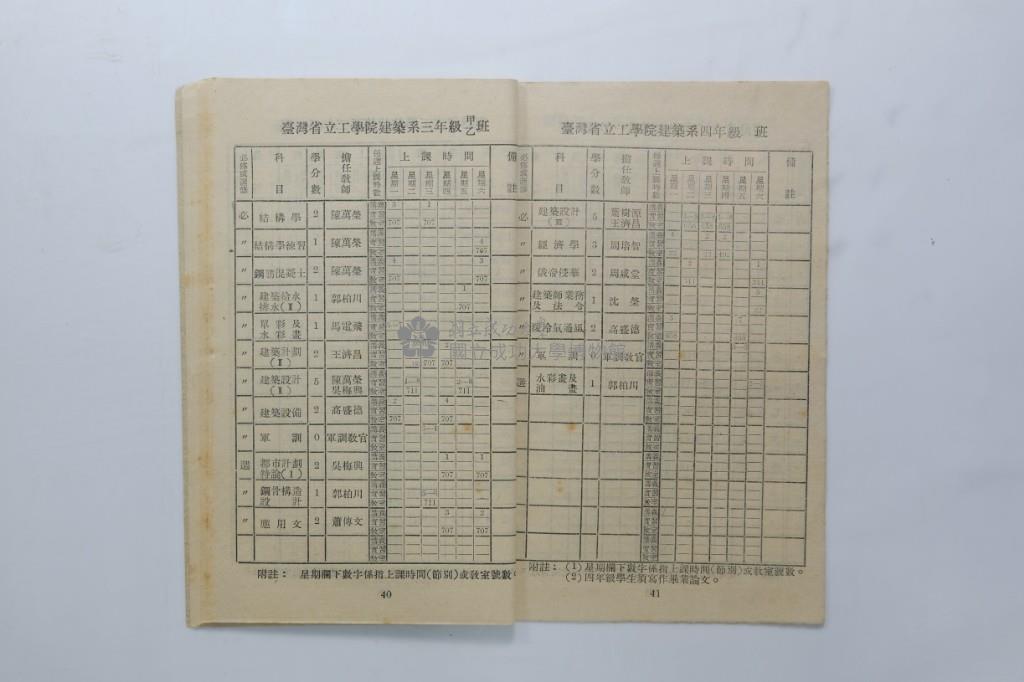 臺灣省立工學院建築系三年級甲乙班
必修或選修 科目 學分數 擔任教師 每週上課時數 上課時間 備註
星期一 星期二 星期三 星期四 星期五 星期六
必 結構學 2 陳萬榮 3 1
707 707
〃 結構學練習 1 陳萬榮 4
707
〃 鋼筋混凝土 2 陳萬榮 4 3
707 707
〃 建築給水排水(I) 1 郭柏川 1
707
〃 單彩及水彩畫 1 馬電飛
〃 建築計劃(I) 2 王濟昌
707 707
〃 建築設計(I) 5 陳萬榮 吳梅興
711 711
〃 建築設備 2 高盛德 2 4
707 707
〃 軍訓 0 軍訓教官
選 都市計劃特論(I) 2 吳梅興 1 1
707 707
〃 鋼骨構造設計 1 郭柏川
721
〃 應用文 2 蕭傳文 3 2
707 707
附註： 星期欄下數字係指上課時間(節別)或教室號數。
40
臺灣省立工學院建築系四年級 班
必修或選修 科目 學分數 擔任教師 每週上課時數 上課時間 備註
星期一 星期二 星期三 星期四 星期五 星期六
必 建築設計(III) 5 葉樹源 王濟昌
〃 經濟學 3 周培智
〃 俄帝侵華 2 周咸堂
〃 建築師業務及法令 1 沈榮
〃 暖冷氣通風 2 高盛德
〃 軍訓 0 軍訓教官
選 水彩畫及油畫 1 郭柏川
附註：(1)星期欄下數字係指上課時間(節別)或教室號數。
(2)四年級學生須寫作畢業論文。
41
國立成功大學博物館